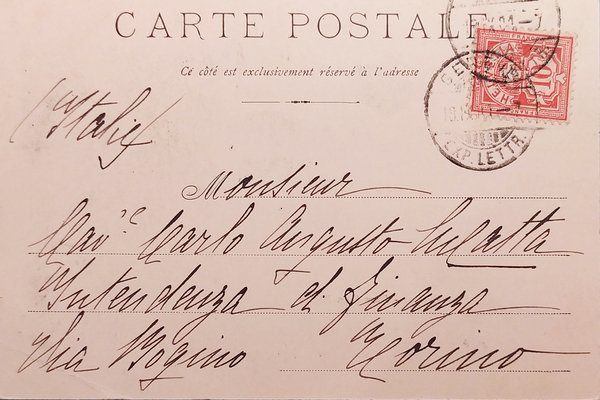 CARTE POSTALE
Ce côté est exclusivement réservé à l'adresse
(Italie)
Monsieur
Cav.re Carlo Augusto
Intendenza di Finanza
Via Bogino Torino
EXP. LETTR.
10